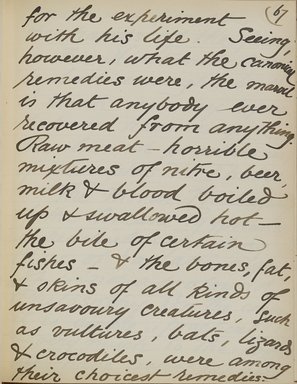 67
for the experiment
with his life. Seeing,
however, what the canonical
remedies were, the marvel
is that anybody ever
recovered from anything.
Raw meat – horrible
mixtures of nitre, beer,
milk & blood boiled
up & swallowed hot –
the bile of certain
fishes – & the bones, fat,
& skins of all kinds of
unsavoury creatures, such
as vultures, bats, lizards
& crocodiles, were among
their choicest remedies: